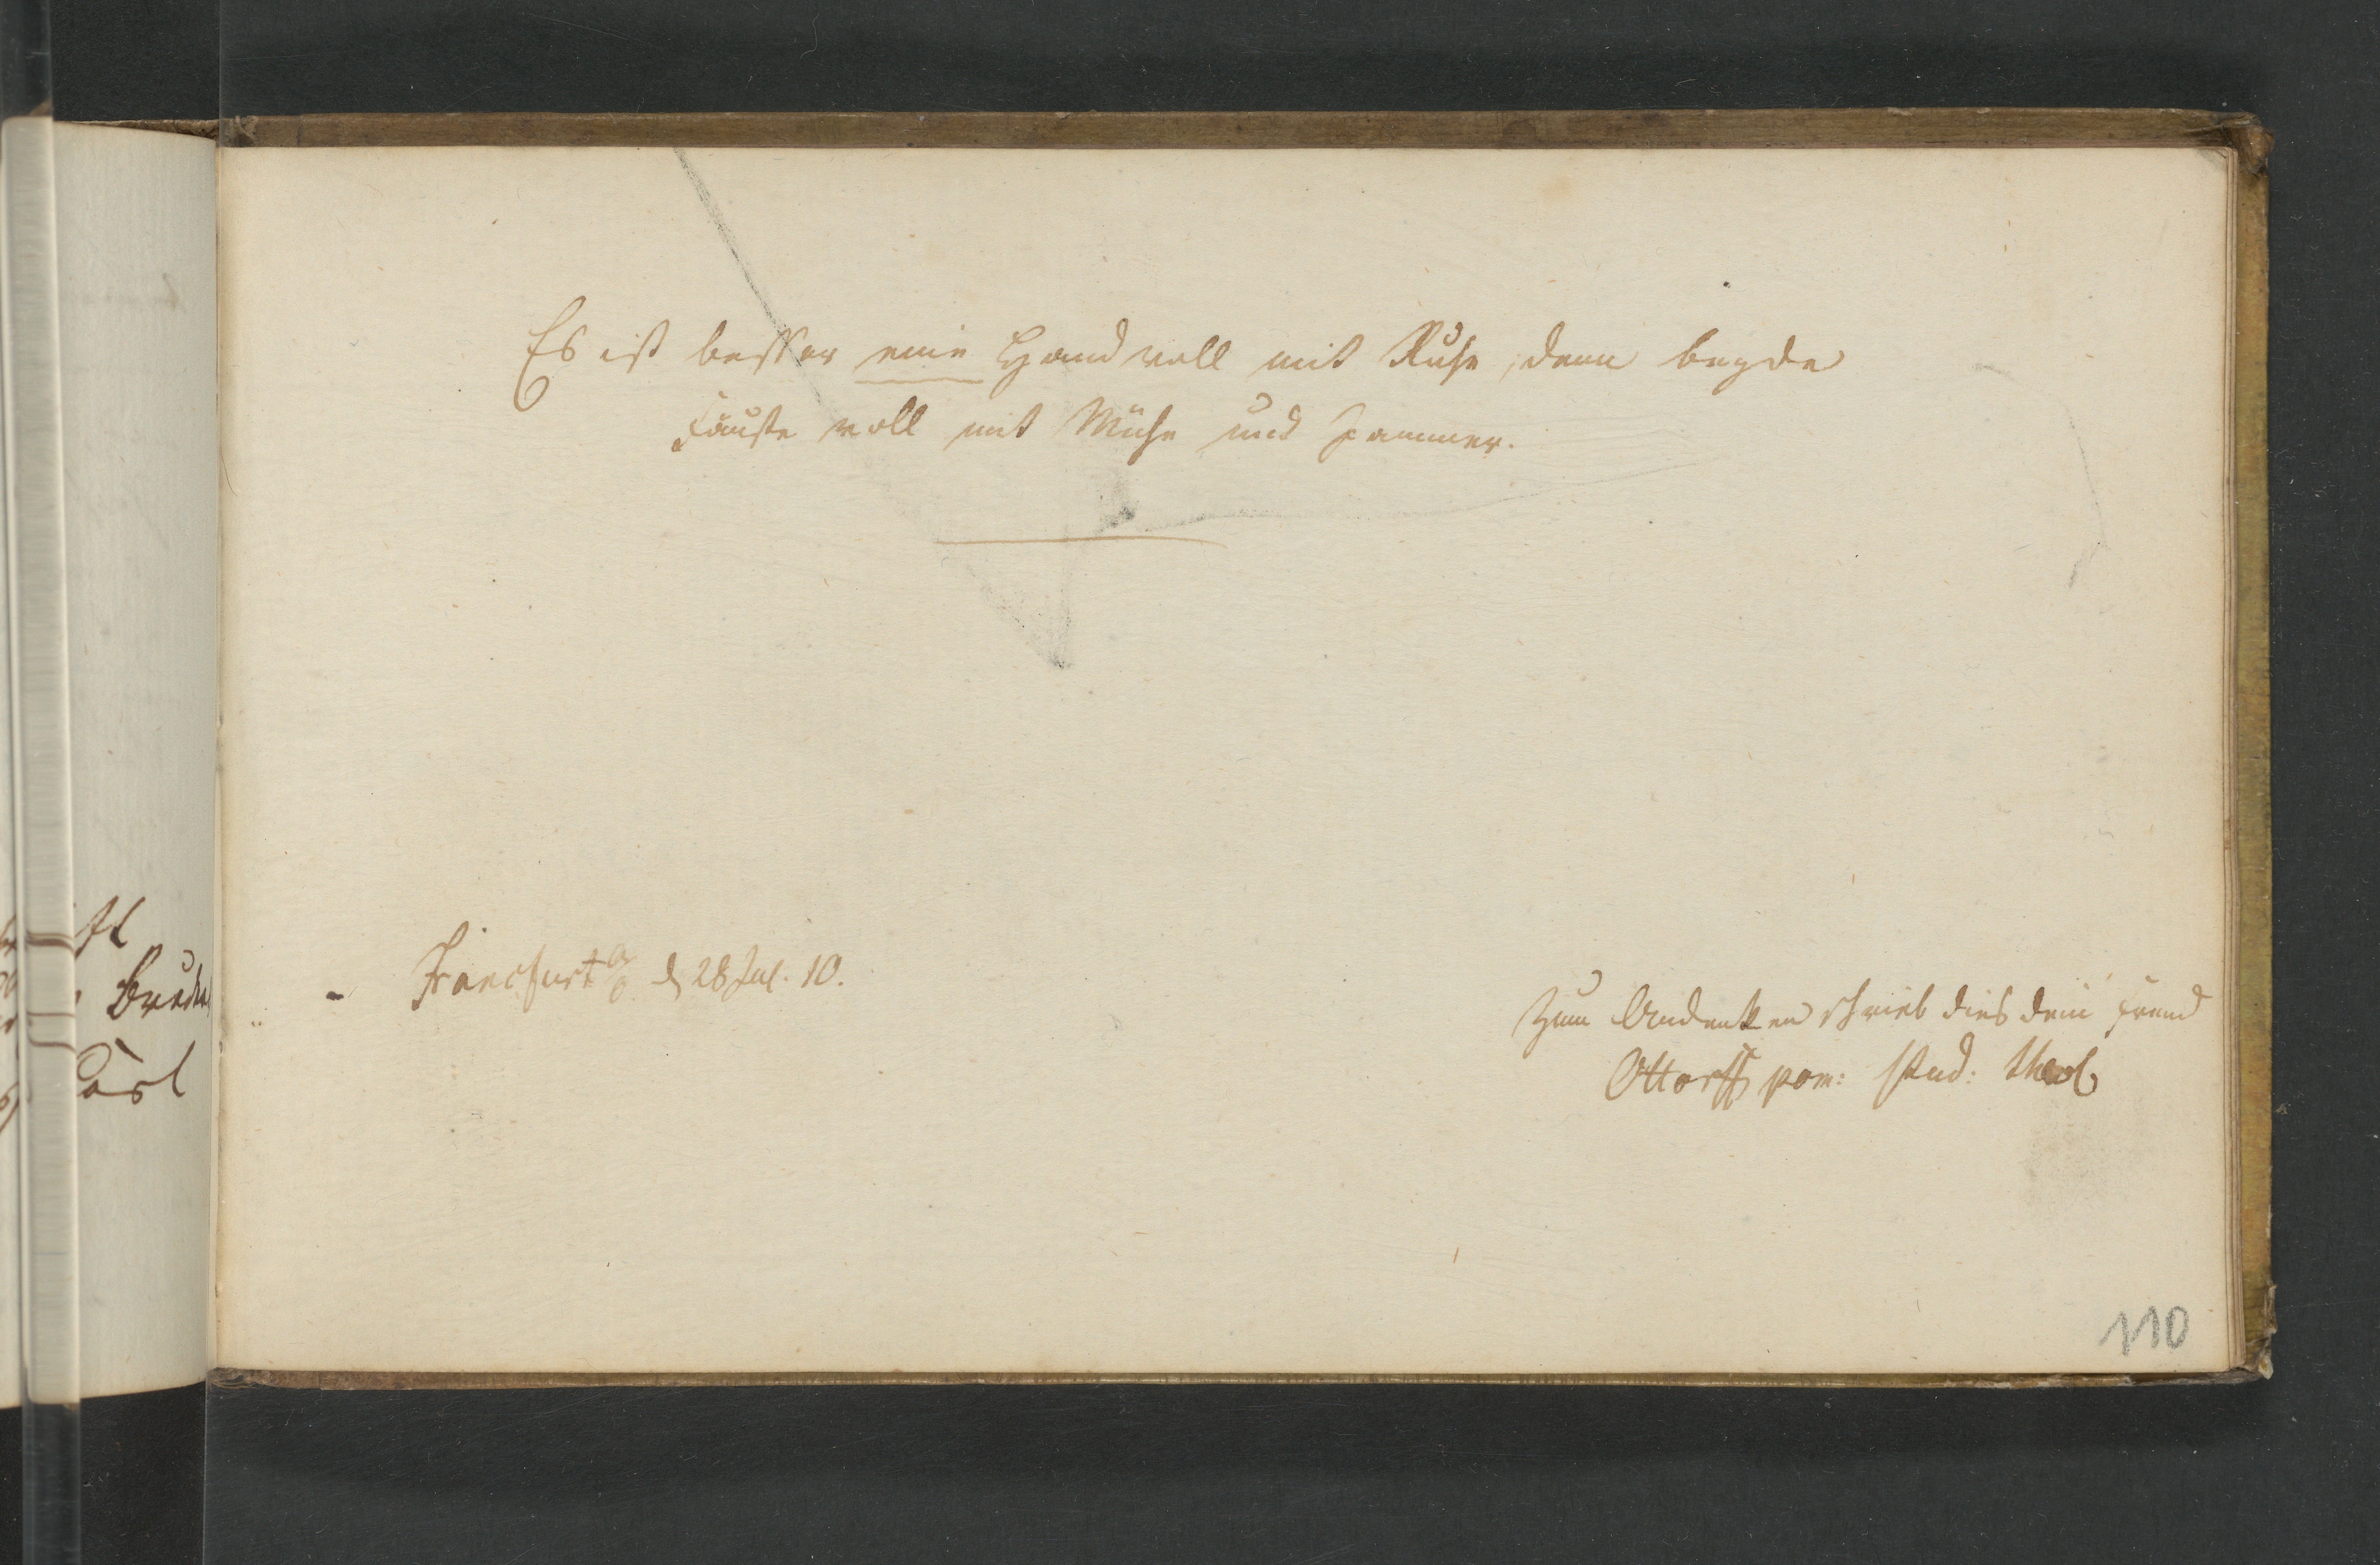 Es ist besser eine Hand voll mit Ruhe, denn beyde
Fäuste voll mit Mühe und Jammer.
Francfurt a/o d 28 Jul. 10.
Zum Andenken schrieb dies dein Freund
Ottorff pom: stud: theol
110
Bruder
Carl